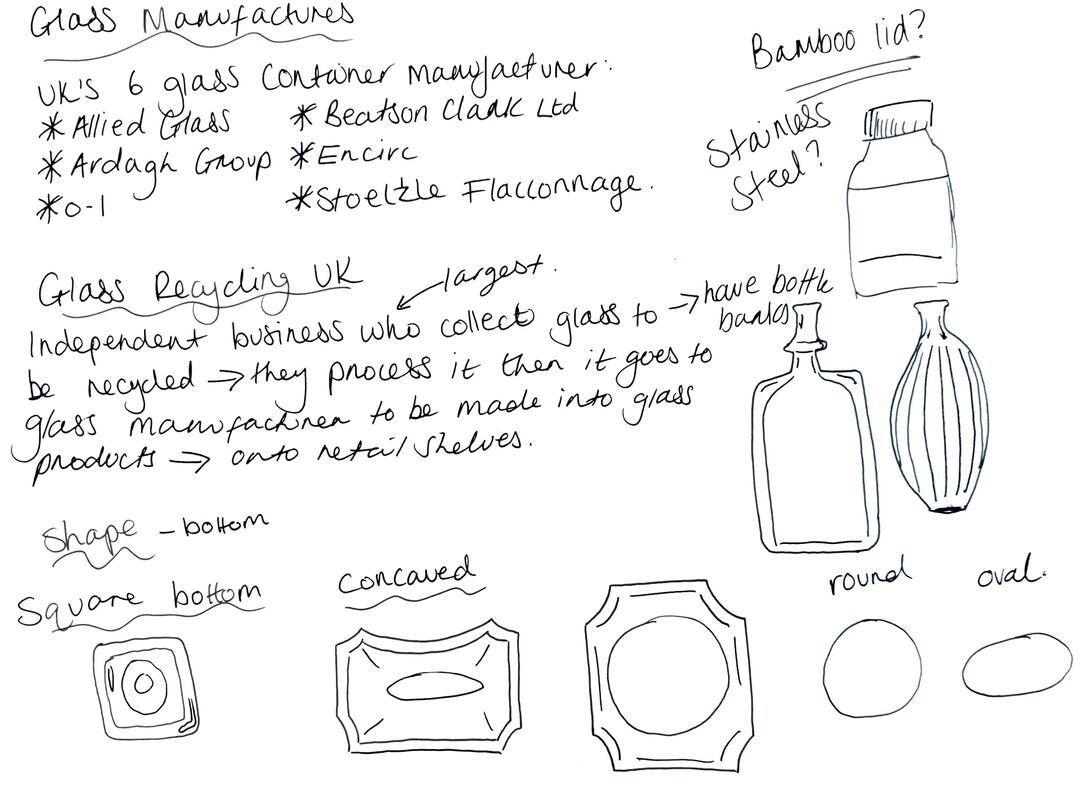 Glass Manufactures
UK'S 6 glass container manufacturer:
* Allied Glass
* Beatson Clark Ltd
* Ardagh Group
* Encirc
* O-I
* Stoelzle Flacconnage.
Bamboo lid?
Stainless
Steel?
Glass Recycling UK
largest.
Independent business who collect glass to → have bottle
banks
be recycled → they process it then it goes to
glass manufacturer to be made into glass
products → onto retail shelves.
Shape - bottom
Square bottom
concaved
round
oval.